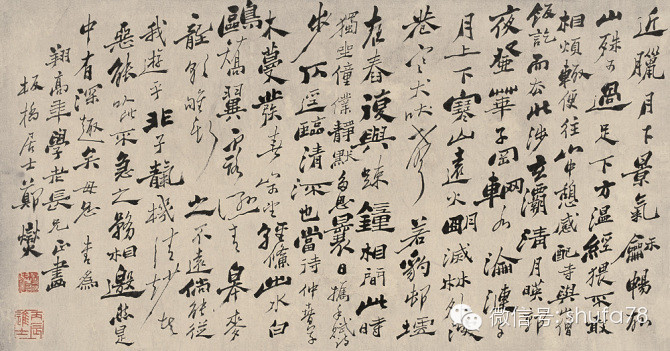 近臘月下景氣龢暢故
山殊可過足下方溫經猥不敢
相煩輒便往山中憩感配寺與山僧
飯訖而去北涉玄灞清月映郭
夜登華子岡輞水淪漣與
月上下寒山遠火明滅林外深
巷寒犬吠聲若豹邨墟
夜舂復與疎鐘相間此時
獨坐僮僕靜默多思曩日攜手賦詩
步仄逕臨清流也當待仲春草
木蔓發春山可望輕鯈出水白
鷗矯翼露濕青皋麥
隴朝雊斯之不遠倘能從
我遊乎非子天機清妙者
惡能以此不急之務相邀然是
中有深趣矣毋忽書為
翔高年學老長兄正畫
板橋居士鄭燮
微信号：shufa78